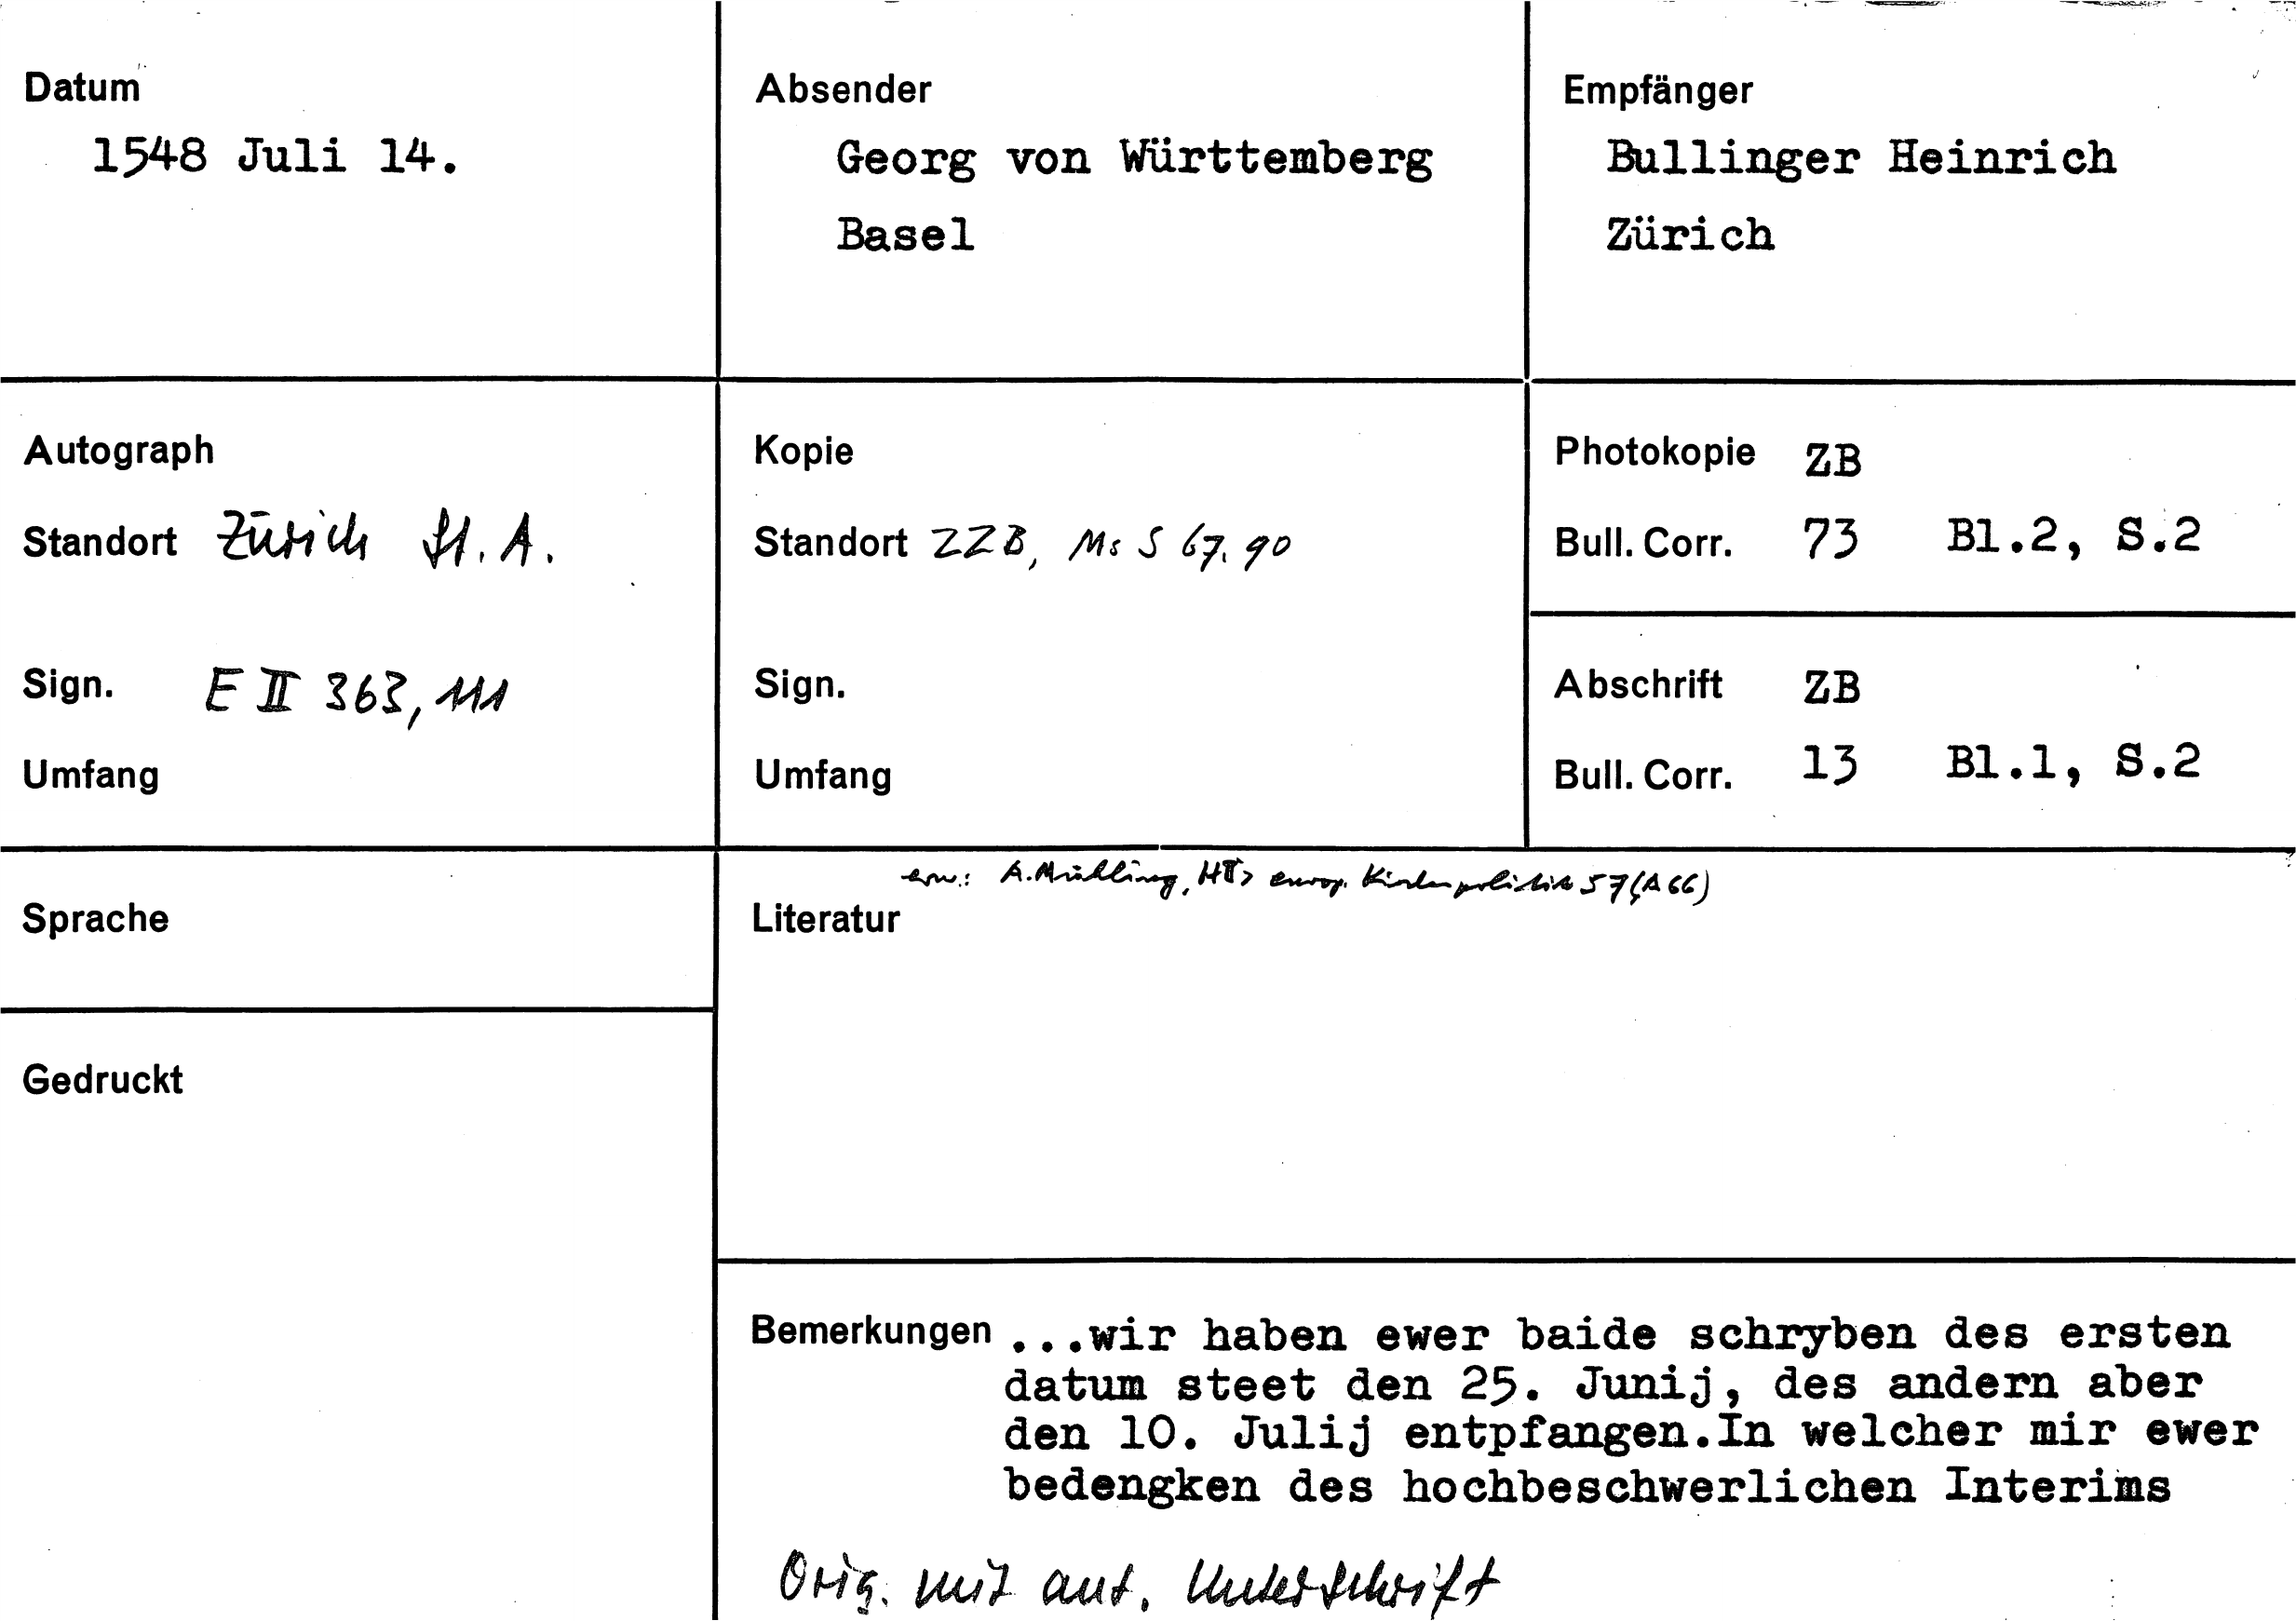 Datum
1548 Juli 14.
Absender
Georg von Württemberg
Basel
Empfänger
Bullinger Heinrich
Zürich
Autograph
Standort Zürich St. A.
Sign. E II 363, 111
Umfang
Kopie
Standort ZZB, Ms S 67. 90
Sign.
Umfang
Photokopie ZB
Bull. Corr. 73 Bl.2, S.2
Abschrift ZB
Bull. Corr. 13 Bl.1, S.2
Sprache
Gedruckt
erw.: A. Mühling, HBs europ. Kirchenpolitik 57 (A 66)
Literatur
Bemerkungen ...wir haben ewer baide schryben des ersten
datum steet den 25. Junij, des andern aber
den 10. Julij entpfangen.In welcher mir ewer
bedengken des hochbeschwerlichen Interims
Orig. mit aut. Unterschrift